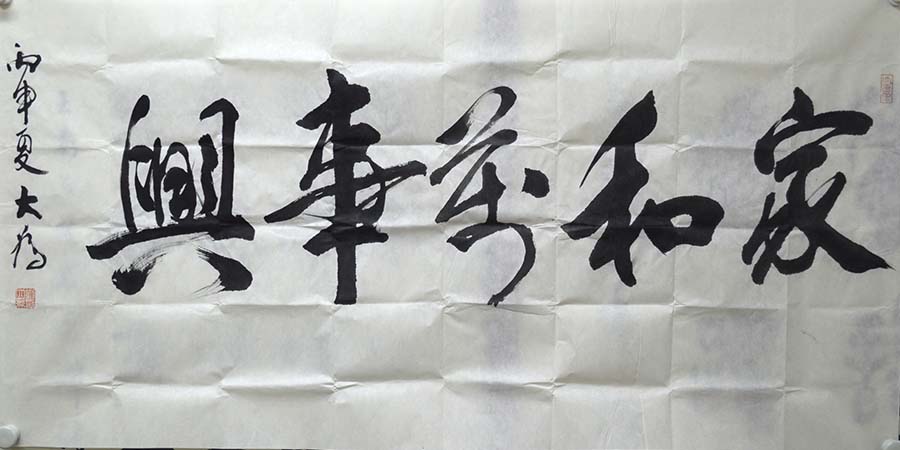 家和萬事興
丙申夏大為